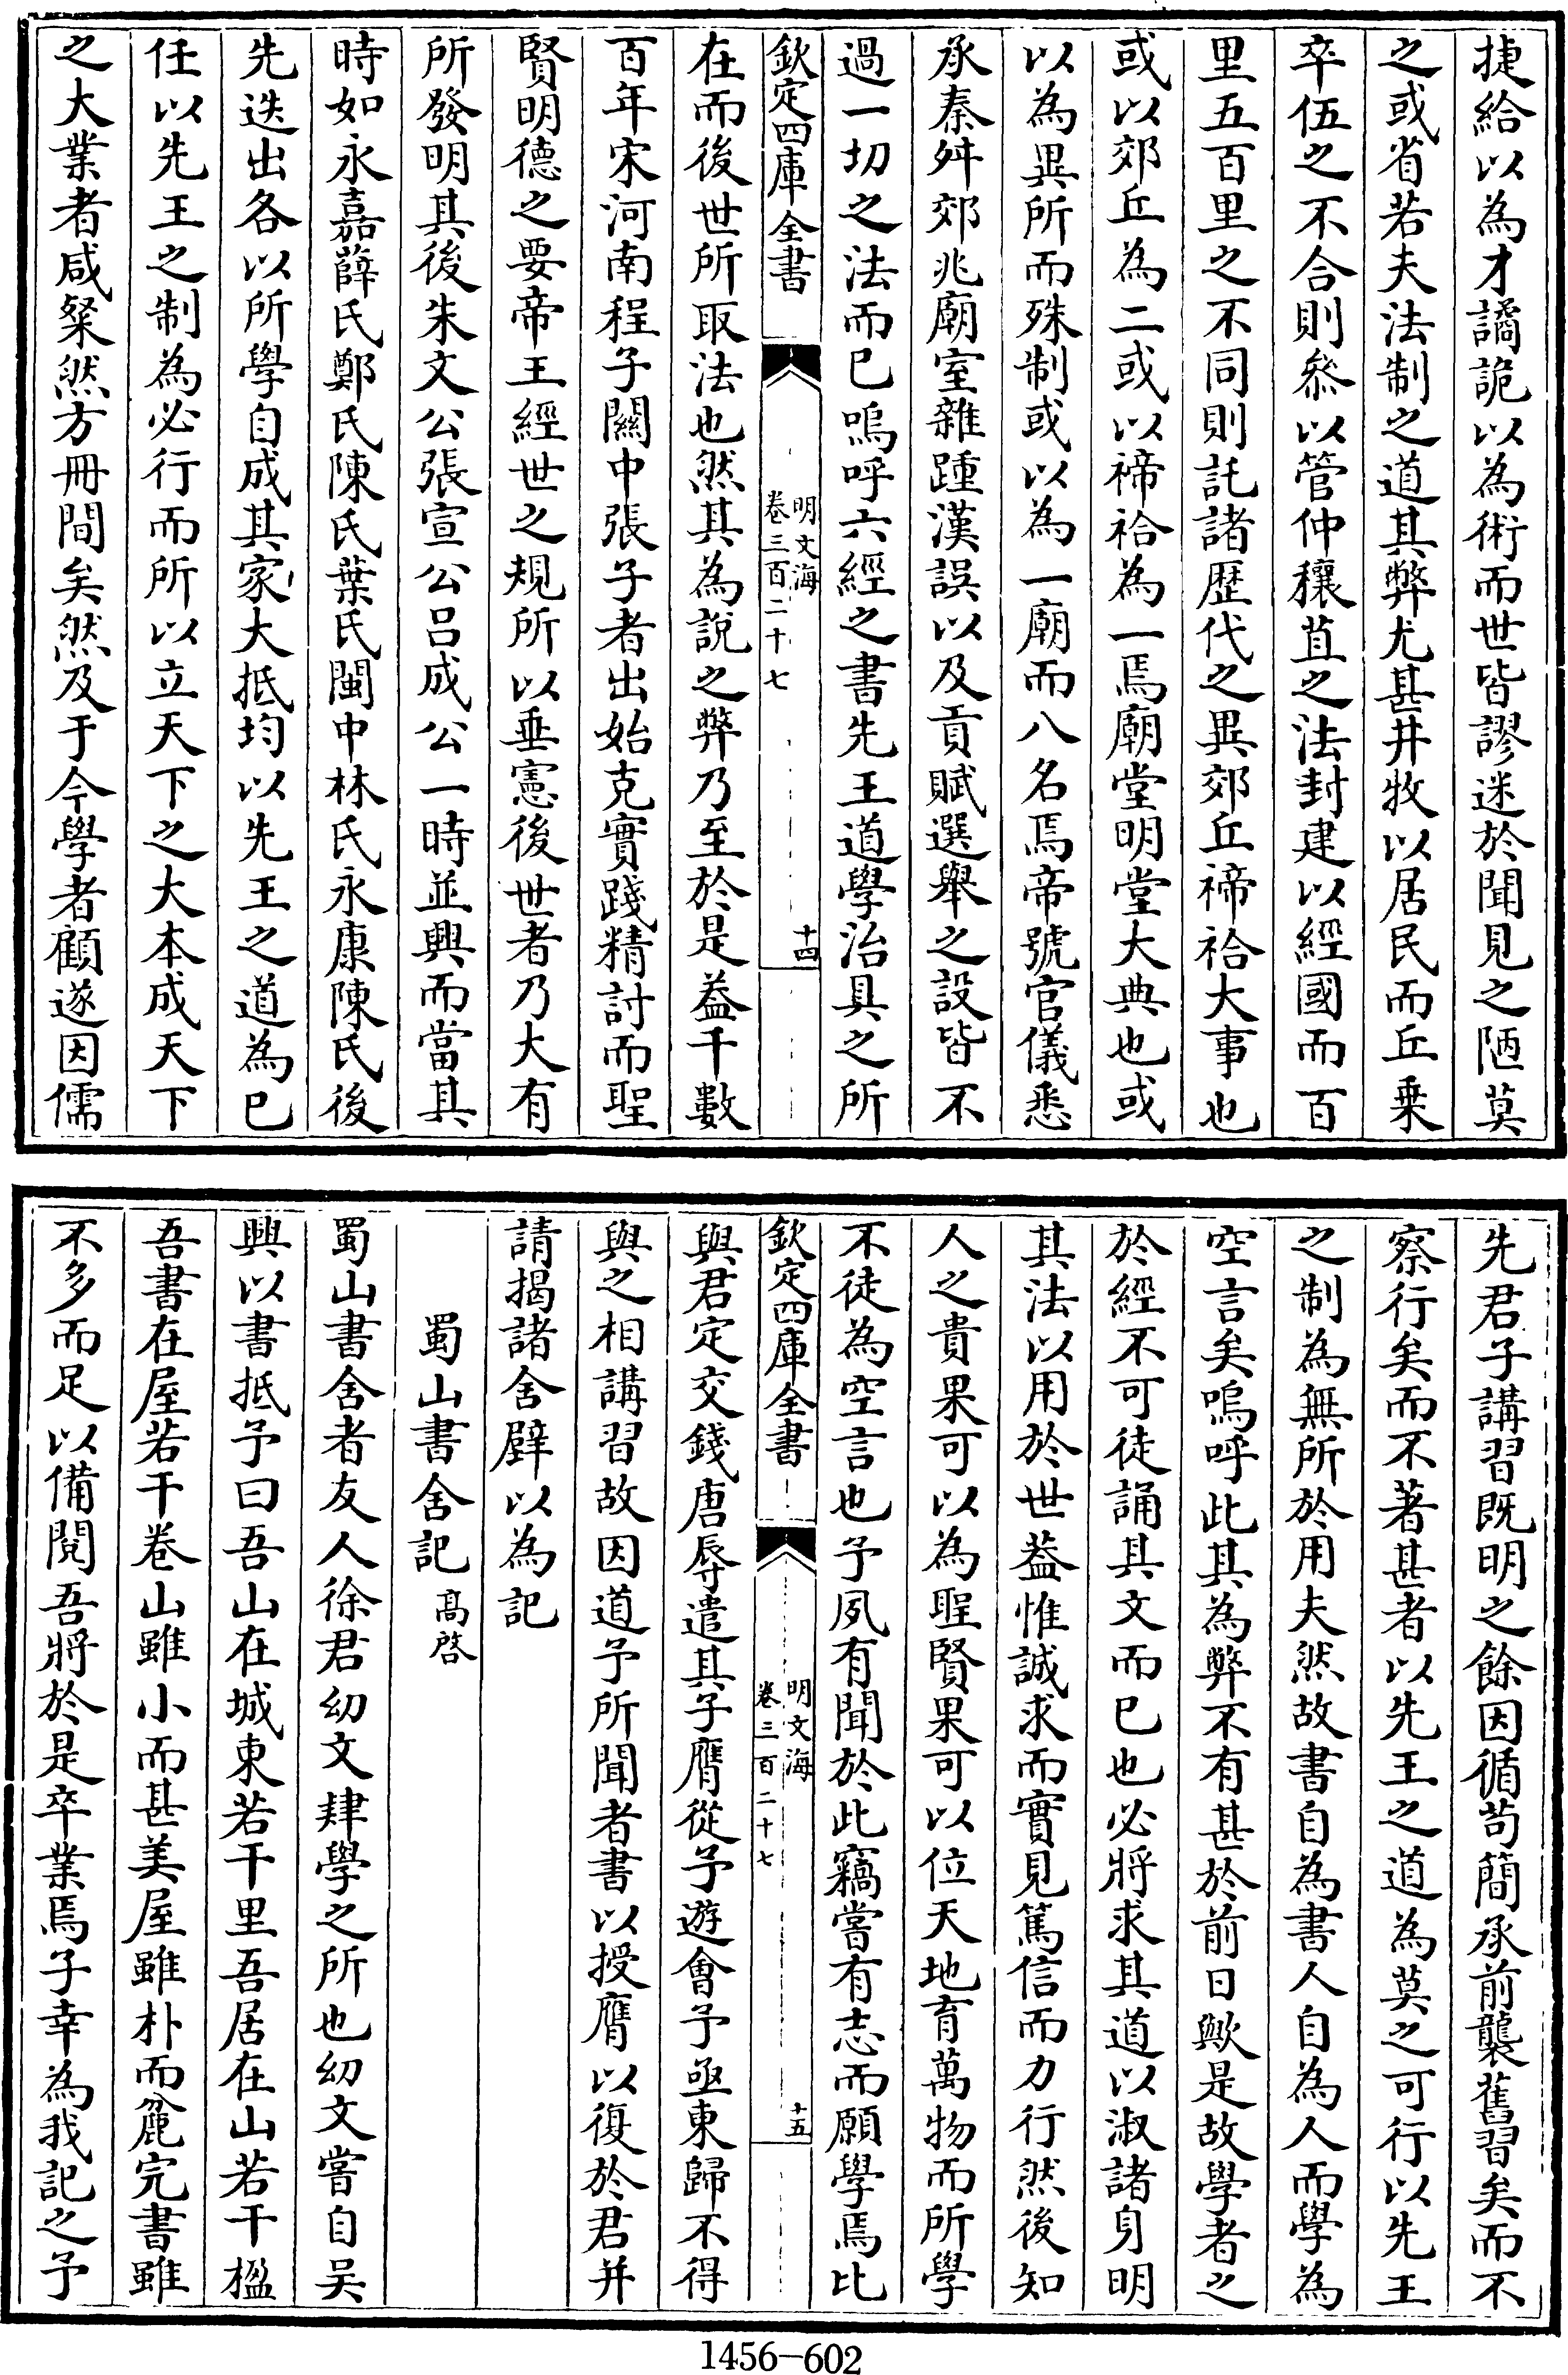 捷給以為才譎詭以為術而世皆謬迷於聞見之陋莫
之或省若夫法制之道其弊尤甚井牧以居民而丘乗
卒伍之不合則叅以管仲穰苴之法封建以經國而百
里五百里之不同則託諸歴代之異郊丘禘祫大事也
或以郊丘為二或以禘祫為一焉廟堂明堂大典也或
以為異所而殊制或以為一廟而八名焉帝號官儀悉
承秦舛郊兆廟室雜踵漢誤以及貢賦選舉之設皆不
過一切之法而已嗚呼六經之書先王道學治具之所
欽定四庫全書
明文海
卷三百二十七
十四
在而後世所取法也然其為說之弊乃至於是葢千數
百年宋河南程子關中張子者出始克實踐精討而聖
賢明德之要帝王經世之規所以垂憲後世者乃大有
所發明其後朱文公張宣公呂成公一時並興而當其
時如永嘉薛氏鄭氏陳氏葉氏閩中林氏永康陳氏後
先迭出各以所學自成其家大抵均以先王之道為已
任以先王之制為必行而所以立天下之大本成天下
之大業者咸粲然方冊間矣然及于今學者顧遂因儒
先君子講習既明之餘因循苟簡承前襲舊習矣而不
察行矣而不著甚者以先王之道為莫之可行以先王
之制為無所於用夫然故書自為書人自為人而學為
空言矣嗚呼此其為弊不有甚於前日歟是故學者之
於經不可徒誦其文而已也必將求其道以淑諸身明
其法以用於世葢惟誠求而實見篤信而力行然後知
人之貴果可以為聖賢果可以位天地育萬物而所學
不徒為空言也予夙有聞於此竊嘗有志而願學焉比
欽定四庫全書
明文海
卷三百二十七
十五
與君定交錢唐辱遣其子膺從予遊會予亟東歸不得
與之相講習故因道予所聞者書以授膺以復於君并
請揭諸舍壁以為記
蜀山書舍記 高啓
蜀山書舍者友人徐君幼文肄學之所也幼文嘗自吴
興以書抵予曰吾山在城東若干里吾居在山若干楹
吾書在屋若干卷山雖小而甚美屋雖朴而麄完書雖
不多而足以備閱吾將於是卒業焉子幸為我記之予
1456-602